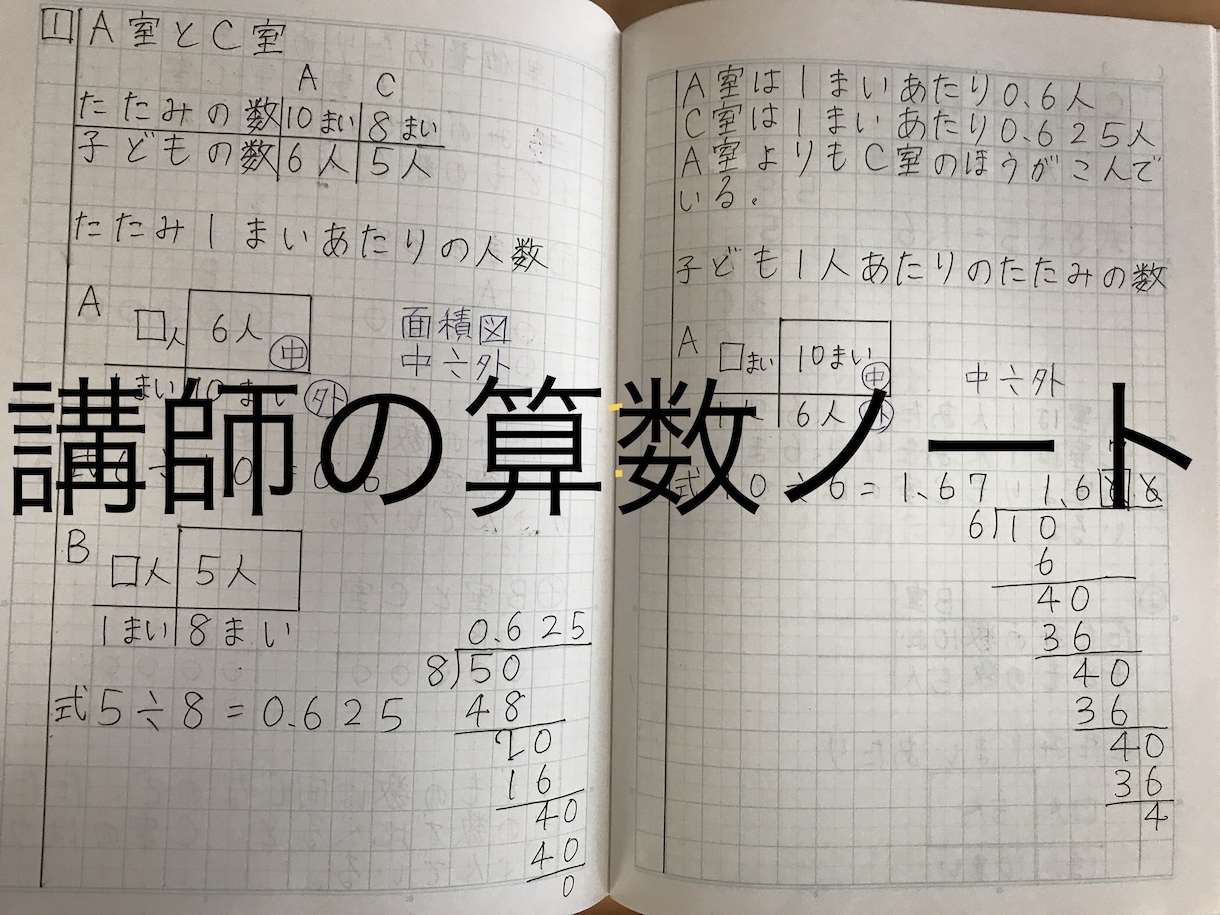 1 A室とC室
A C
たたみの数 10まい 8まい
子どもの数 6人 5人
たたみ1まいあたりの人数
A
□人 6人 中
1まい 10まい 外
面積図
中÷外
講師の算数ノート
B
□人 5人
1まい 8まい
式5÷8=0.625
0.625
8)50
48
20
16
40
40
0
A室は1まいあたり0.6人
C室は1まいあたり0.625人
A室よりもC室のほうがこんで
いる.
子ども1人あたりのたたみの数
A
□まい 10まい 中
6人 外
中÷外
式10÷6=1.67
1.6
6)10
6
40
36
40
36
40
36
4